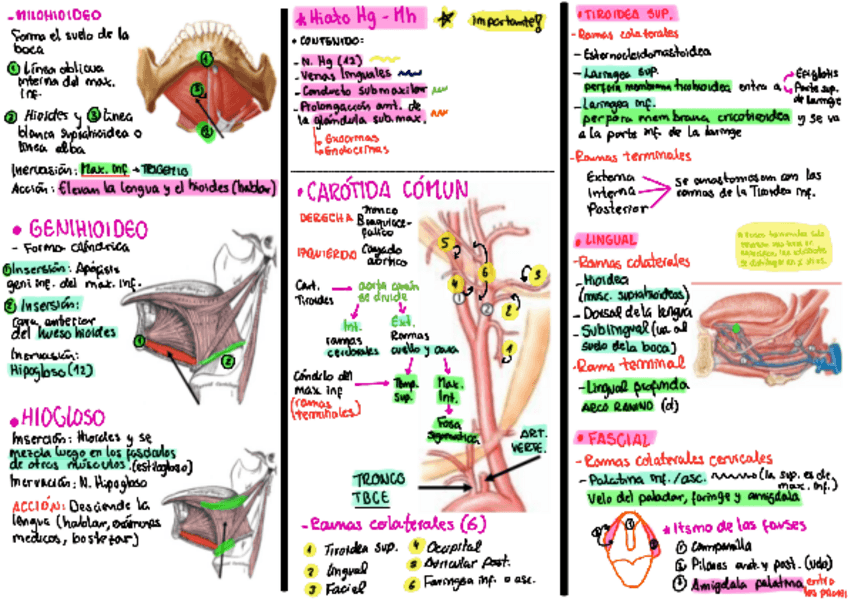 -MILOHIOIDEO
Forma el suelo de la
boca
① Línea oblicua
interna del max.
inf.
② Hioides y ③ línea
blanca suprahioidea o
línea alba
Inervasión: Max. inf → TRIGEMIO
Acción: Elevan la lengua y el hioides (hablar)
1
3
2
• GENIHIOIDEO
- Forma cilíndrica
① Insersión: Apófisis
geni inf. del max. inf.
② Insersión:
cara anterior
del hueso hioides
Inervasión:
Hipogloso (12)
1
2
• HIOGLOSO
Inserción: Hioides y se
mezcla luego en los fascículos
de otros músculos. (estilogloso)
Inervación: N. Hipogloso
ACCIÓN: Desciende la
lengua (hablar, exámenes
médicos, bostezar)
* Hiato Hg - Mh
importante!
• CONTENIDO:
- N. Hg (12)
- Venas linguales
- Conducto submaxilar
- Prolongación ant. de
la glándula sub.max.
→ Exocrinas
→ Endocrinas
• CARÓTIDA COMÚN
DERECHA Tronco
Braquioce-
fálico
IZQUIERDO Cayado
aórtico
Cart.
Tiroides → aorta común
se divide
Int. Ext.
ramas
cerebrales
Ramas
cuello y cara
Cóndilo del
max inf
(ramas
terminales)
Temp.
Sup.
Max.
Int.
Fosa
5
6
4
3
1
2
2
1
ART.
VERTE.
TRONCO
TBCE
- Ramas colaterales (6)
1 Tiroidea Sup.
2 Lingual
3 Facial
4 Occipital
5 Auricular Post.
6 Faringea inf. o asc.
• TIROIDEA SUP.
- Ramas colaterales
- Esternocleidomastoidea
- Laringea Sup.
perfora membrana tirohioidea entra a
Epiglotis
Parte sup.
de laringe
- Laringea inf.
perfora membrana cricotiroidea y se va
a la parte inf. de la laringe
- Ramas terminales
Externa
Interna
Posterior
Se anastomosan con las
ramas de la Tiroidea inf.
• LINGUAL
- Ramas colaterales
- Hioidea
(musc. suprahioideos)
- Dorsal de la lengua
- Sublingual (va al
suelo de la boca)
- Rama terminal
- Lingual profunda
ARCO RANINO (d)
• FASCIAL
- Ramas colaterales cervicales
- Palatina inf./asc. (la sup. es de
max. inf.)
Velo del paladar, faringe y amígdala
* Itsmo de las fauses
① Campanilla
② Pilares ant. y post. (vdo)
③ Amígdala palatina entre
los pilares